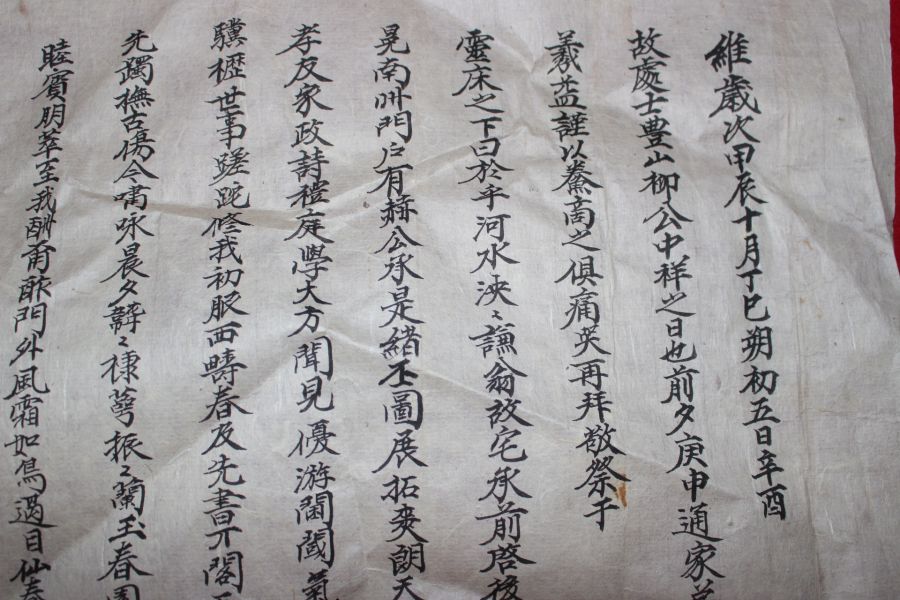 維歲次甲辰十月丁巳朔初五日辛酉
故處士豊山柳公中祥之日也前夕庚申通家
羲益謹以鱻啇之俱痛哭再拜敬祭于
靈床之下曰於乎河水泱〻謙翁攸宅承前啓後
晃南州門戶有赫公承是緒丕圖展拓爽朗天
孝友家政詩禮庭學大方聞見優游閫閾氣
驥櫪世事蹉跎修我初服西疇春及先書
先躅撫古傷今嘯咏晨夕韡〻棣萼振〻蘭玉春園
睦賓朋萃至我酬甭酢門外風霜如鳥過目仙春